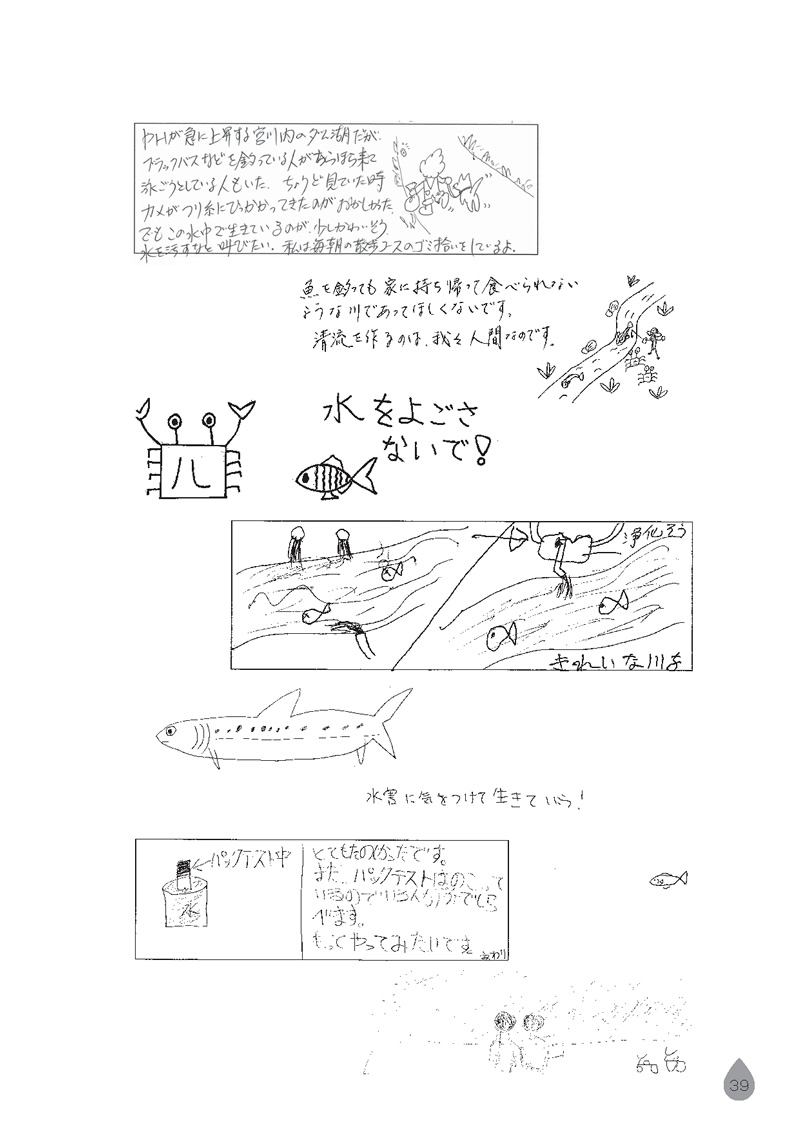 PHが急に上昇する宮川内のダム湖だが、
ブラックバスなどを釣っている人がちらほら来て
泳ごうとしている人もいた。ちょうど見ていた時
カメがつり糸にひっかかってきたのがおかしかった
でもこの水中で生きているのが、少しかわいそう。
水を汚すなと叫びたい。私は毎朝の散歩コースのゴミ拾いをしているよ。
魚を釣っても家に持ち帰って食べられない
ような川であってほしくないです。
清流を作るのは、我々人間なのです。
水をよごさ
ないで!
八
浄化そう
きれいな川を
水害に気をつけて生きていこう!
パックテスト中
水
とてもたのしかったです。
また、パックテストはのこって
いるのでいろんな川でしら
べます。
もってやってみたいです
おわり
39